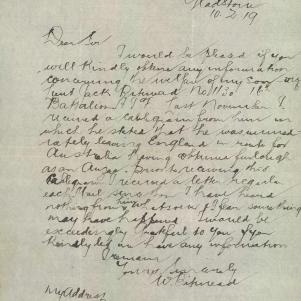 Gladstone
10.2.19
Dear Sir
I would be pleased if you
will kindly obtain any information
concerning the welfare of my son
Jack No 1130 16th
Battalion AIF last November I
received a cablegram from him in
which he stated that he was immed
iately leaving England en route for
Australia having obtained furlough
as an Anzac. Prior to receiving this
cablegram I received a letter regular
each but since then I have heard
nothing from him whatsoever & I fear something
may have happened I would be
exceedingly grateful to you if you
kindly let me have any information
I remain
Yours Sincerely
W
My Address